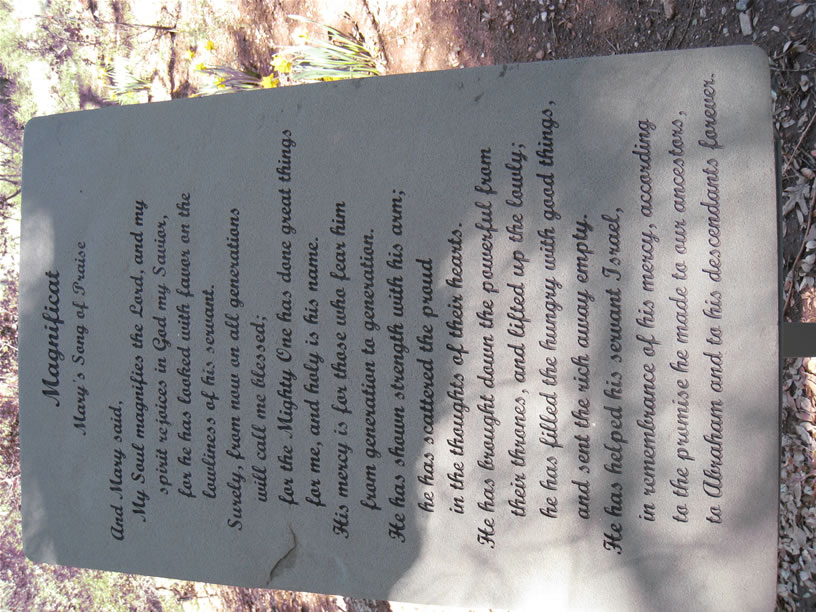 Magnificat
Mary's Song of Praise
And Mary said,
My Soul magnifies the Lord, and my
spirit rejoices in God my Savior,
for he has looked with favor on the
lowliness of his servant.
Surely, from now on all generations
will call me blessed;
for the Mighty One has done great things
for me, and holy is his name.
His mercy is for those who fear him
from generation to generation.
He has shown strength with his arm;
he has scattered the proud
in the thoughts of their hearts.
He has brought down the powerful from
their thrones, and lifted up the lowly;
he has filled the hungry with good things,
and sent the rich away empty.
He has helped his servant Israel,
in remembrance of his mercy, according
to the promise he made to our ancestors,
to Abraham and to his descendants forever.